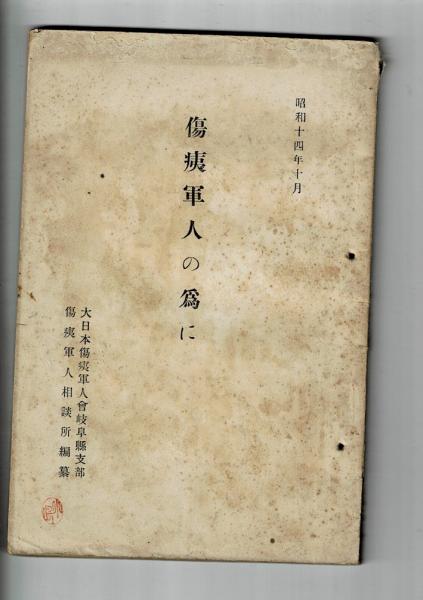 昭和十四年十月
傷痍軍人の爲に
大日本傷痍軍人會岐阜縣支部
傷痍軍人相談所編纂